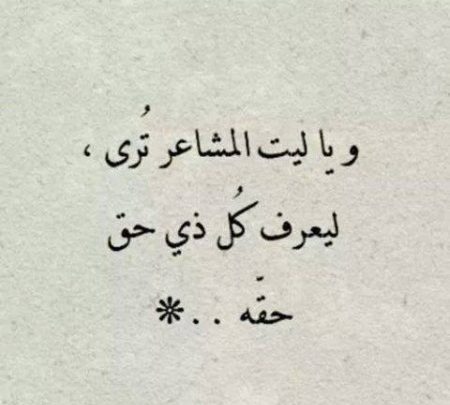 و يا ليت المشاعر تُرى ،
ليعرف كُل ذي حق
حقّه . . ❊